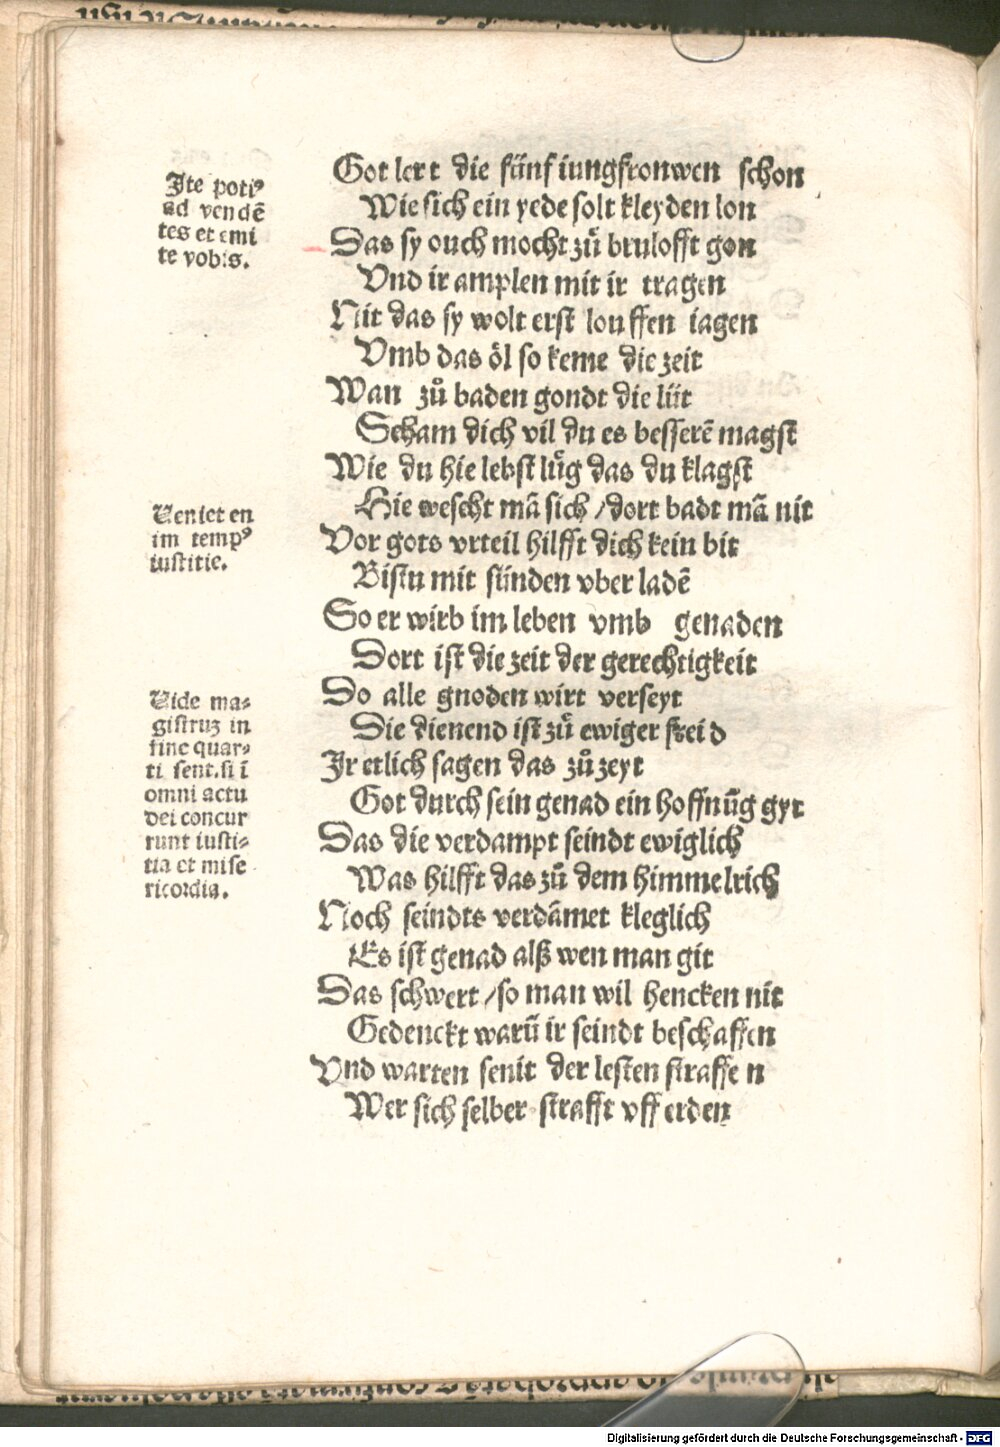 Jte poti⁹
ad vendē
tes et emi
te vobis.
Got lert die fünf iungfronwen schon
Wie sich ein yede solt kleyden lon
Das sy ouch mocht zů brulofft gon
Vnd ir amplen mit ir tragen
Nit das sy wolt erst louffen iagen
Vmb das öl so keme die zeit
Wan zů baden gondt die lüt
Scham dich vil du es besserē magst
Wie du hie lebst lůg das du klagst
Veniet en
im temp⁹
iusticie.
Hie wescht mā sich / dort badt mā nit
Vor gots vrteil hilfft dich kein bit
Bistu mit sünden vber ladē
So er wirb im leben vmb genaden
Dort ist die zeit der gerechtigkeit
Vide ma⸗
gistruz in
fine quar⸗
ti sent. si ī
omni actu
dei concur
runt iusti⸗
tia et mise
ricordia.
Do alle gnoden wirt verseyt
Die dienend ist zů ewiger freid
Jr etlich sagen das zů zeyt
Got durch sein genad ein hoffnūg gyt
Das die verdampt seindt ewiglich
Was hilfft das zů dem himmelrich
Noch seindts verdāmet kleglich
Es ist genad alß wen man git
Das schwert / so man wil hencken nit
Gedenckt warū ir seindt beschaffen
Vnd warten senit der lesten straffen
Wer sich selber strafft vff erden
Digitalisierung gefördert durch die Deutsche Forschungsgemeinschaft - DFG